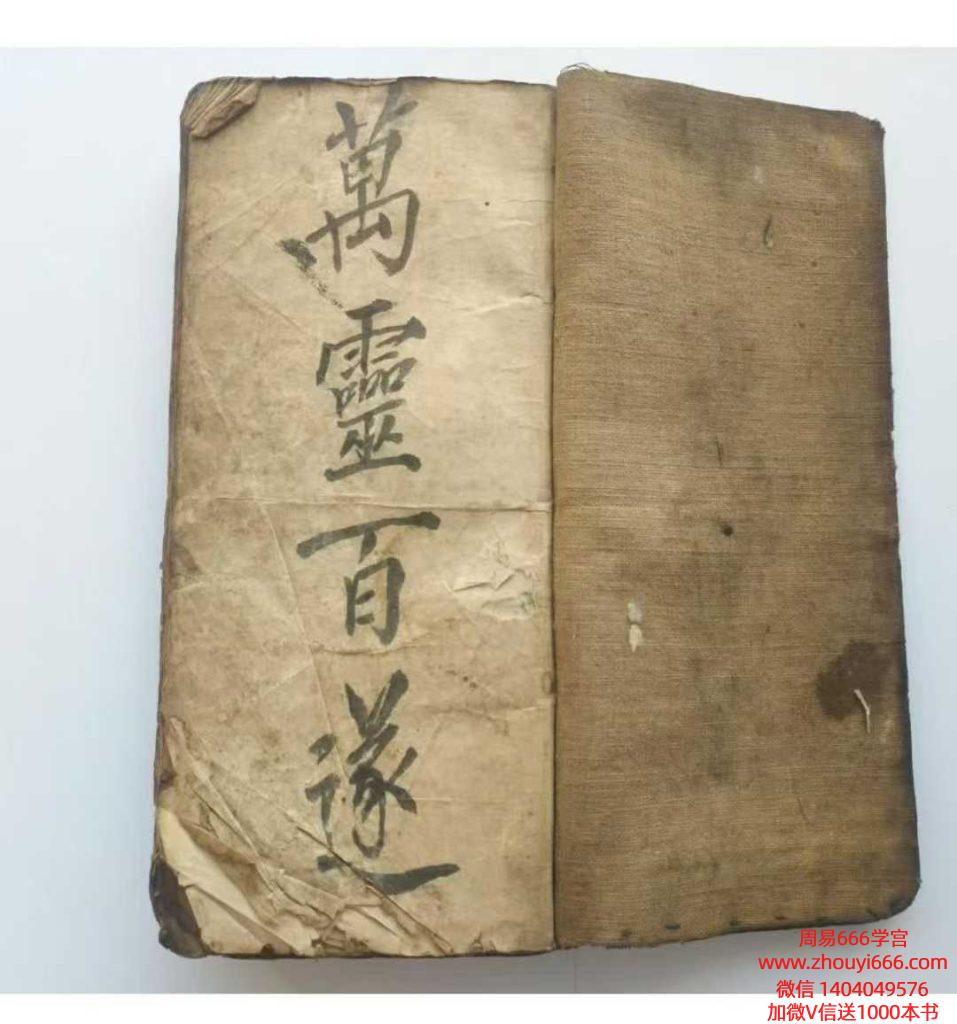 萬靈百遂
周易666学宫
www.zhouyi666.com
微信 1404049576
加微V信送1000本书